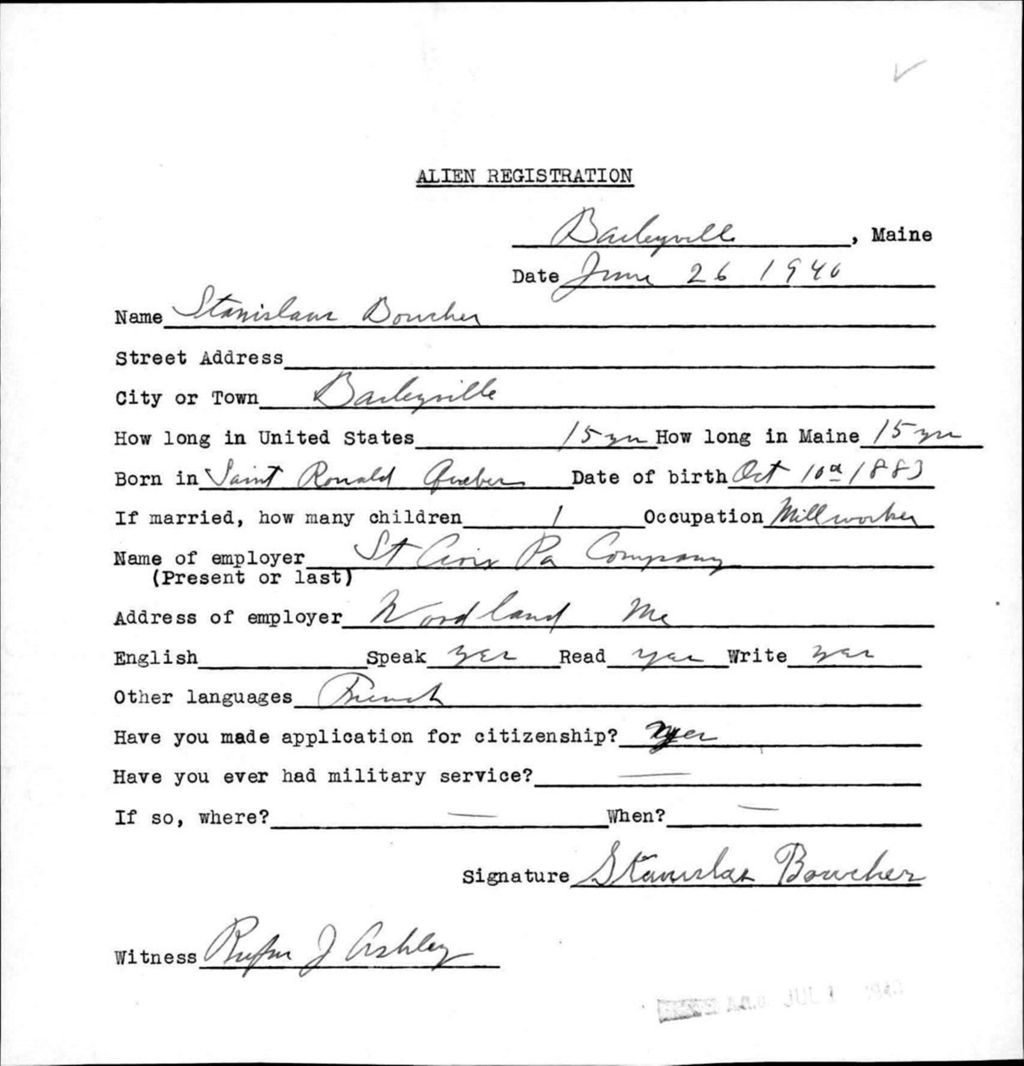 ALIEN REGISTRATION
Baileyville, Maine
Date June 26 1940
Name Stanislaus Boucher
Street Address
City or Town Baileyville
How long in United States 15 yrs How long in Maine 15 yrs
Born in Saint Ronald Quebec Date of birth Oct 10th 1883
If married, how many children 1 Occupation Millworker
Name of employer St Croix Pa Company
(Present or last)
Address of employer Woodland Me
English Speak yes Read yes Write yes
Other languages French
Have you made application for citizenship? yes
Have you ever had military service? —
If so, where? — When? —
Signature Stanislas Boucher
Witness Rufus J Ashley
A.G.O. JUL 1 1940